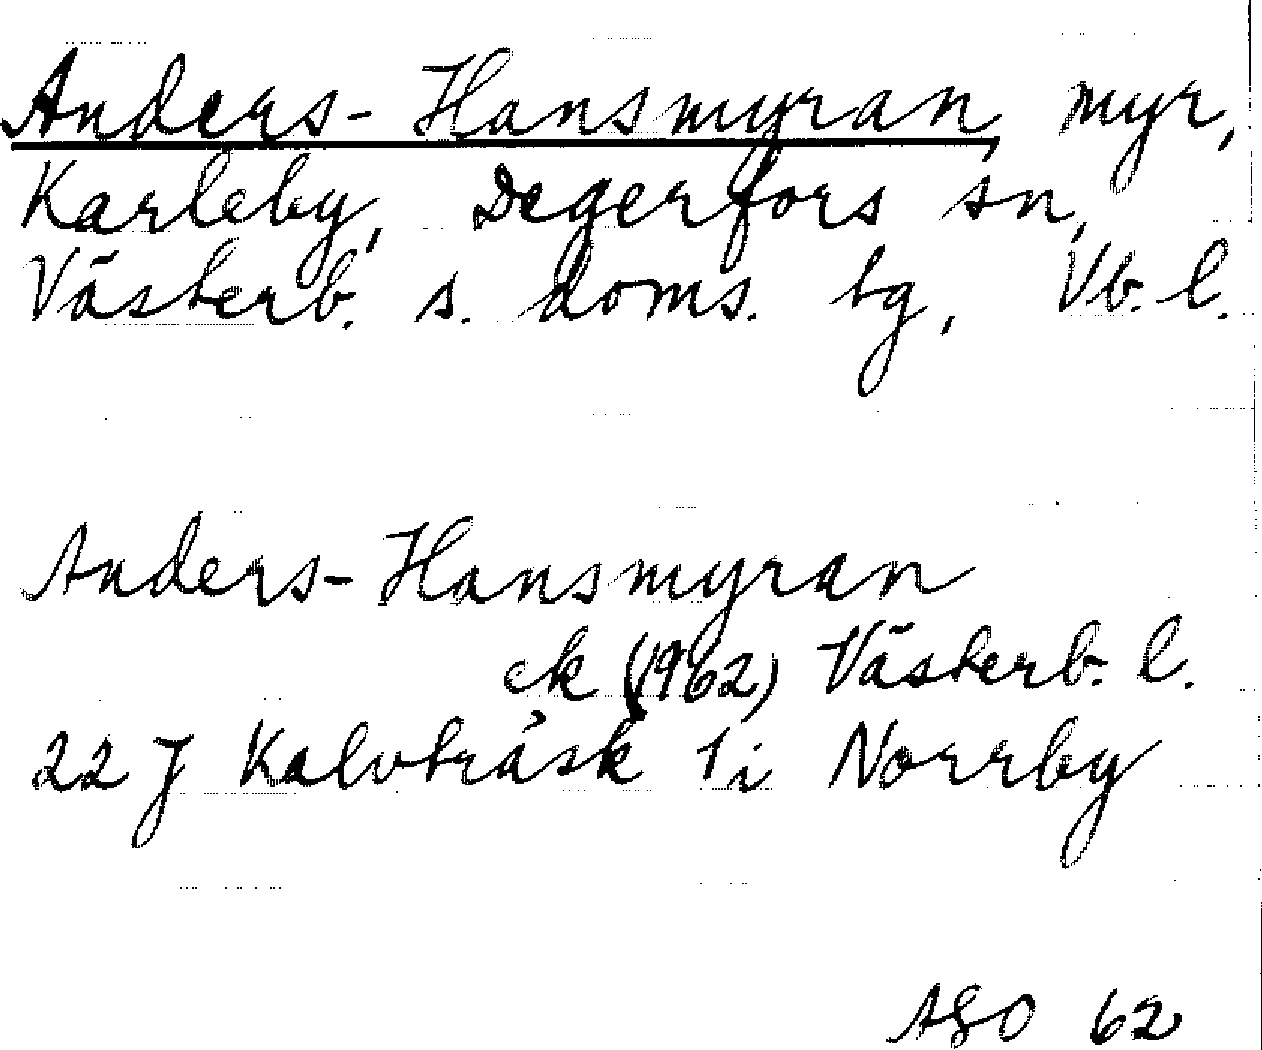 Anders-Hansmyran, myr,
Karleby, Degerfors sn,
Västerb. s. doms. tg, Vb. l.
Anders-Hansmyran
ek (1962) Västerb. l.
22 J Kalvträsk 1 i Norrby
ASO 62